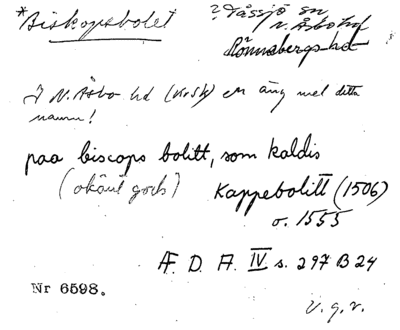 *Biskopsbolet
? Tåssjö sn
N. Åsbo hd
Rönnebergs hd
I N. Åsbo hd (KrSk) en äng med detta
namn!
paa biscops bolitt, som kaldis
(okänt gods) Kappebolitt (1506)
o. 1555
Æ. D. A. IV s. 297 B 24
Nr 6598.
V. g. v.